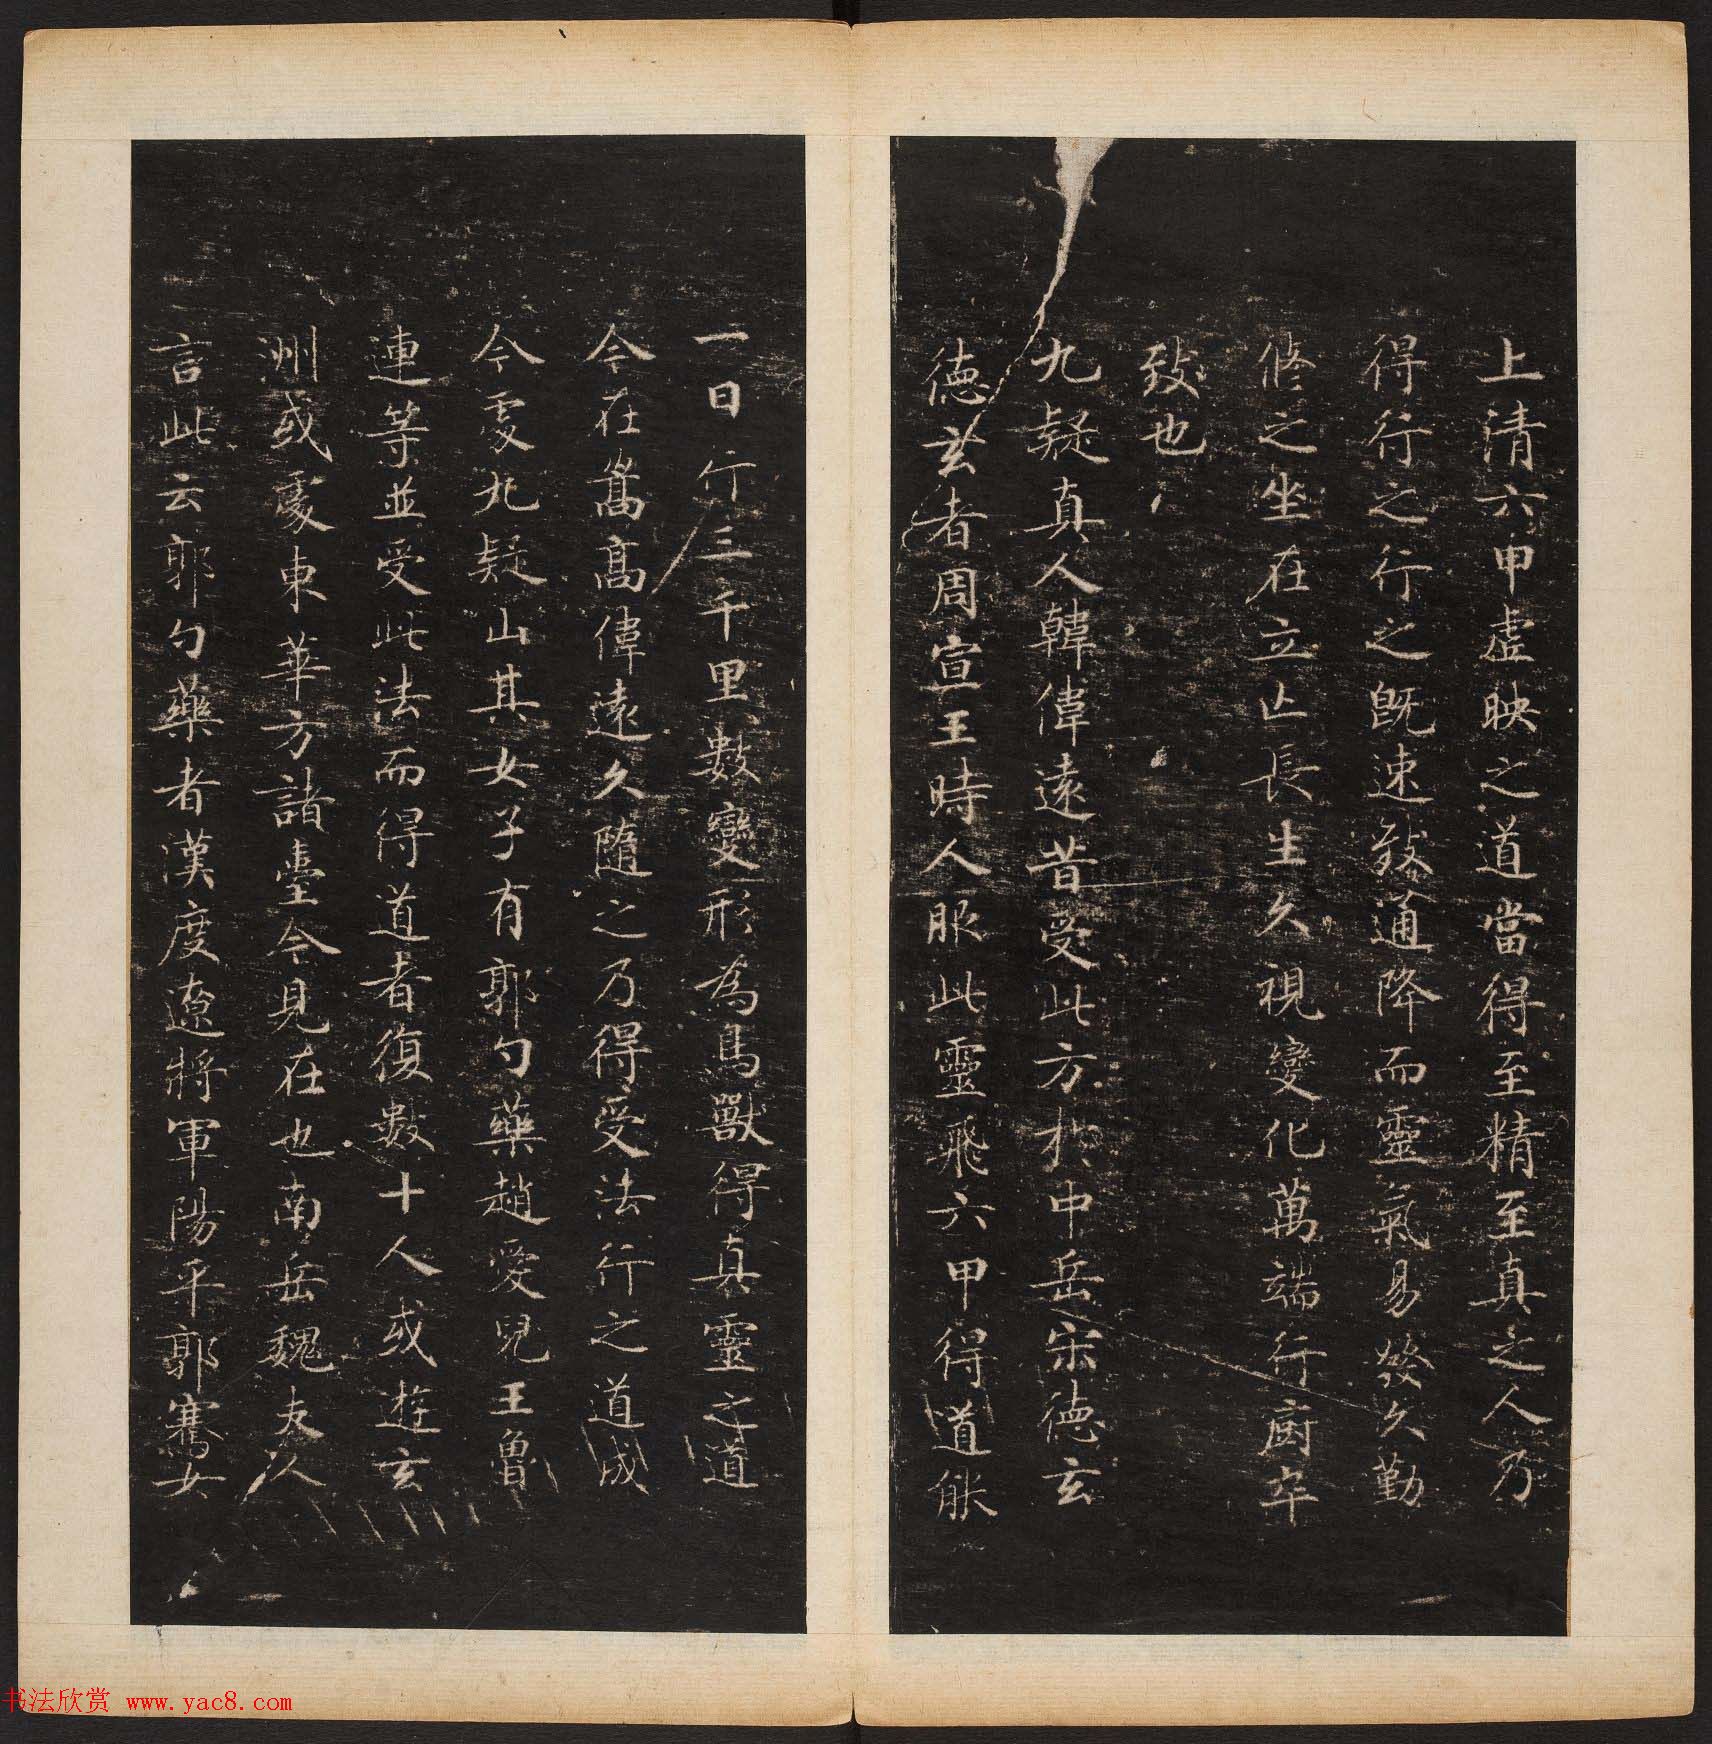 上清六甲虛映之道當得至精至真之人乃
得行之行之既速致通降而靈氣易發久勤
修之坐在立亡長生久視變化萬端行廚卒
致也
九疑真人韓偉遠昔受此方於中岳宋德玄
德玄者周宣王時人服此靈飛六甲得道能
一日行三千里數變形為鳥獸得真靈之道
今在嵩高偉遠久隨之乃得受法行之道成
今處九疑山其女子有郭勺藥趙愛兒王魯
連等並受此法而得道者復數十人或遊玄
洲或處東華方諸臺今見在也南岳魏夫人
言此云郭勺藥者漢度遼將軍陽平郭騫女
书法欣赏 www.yac8.com